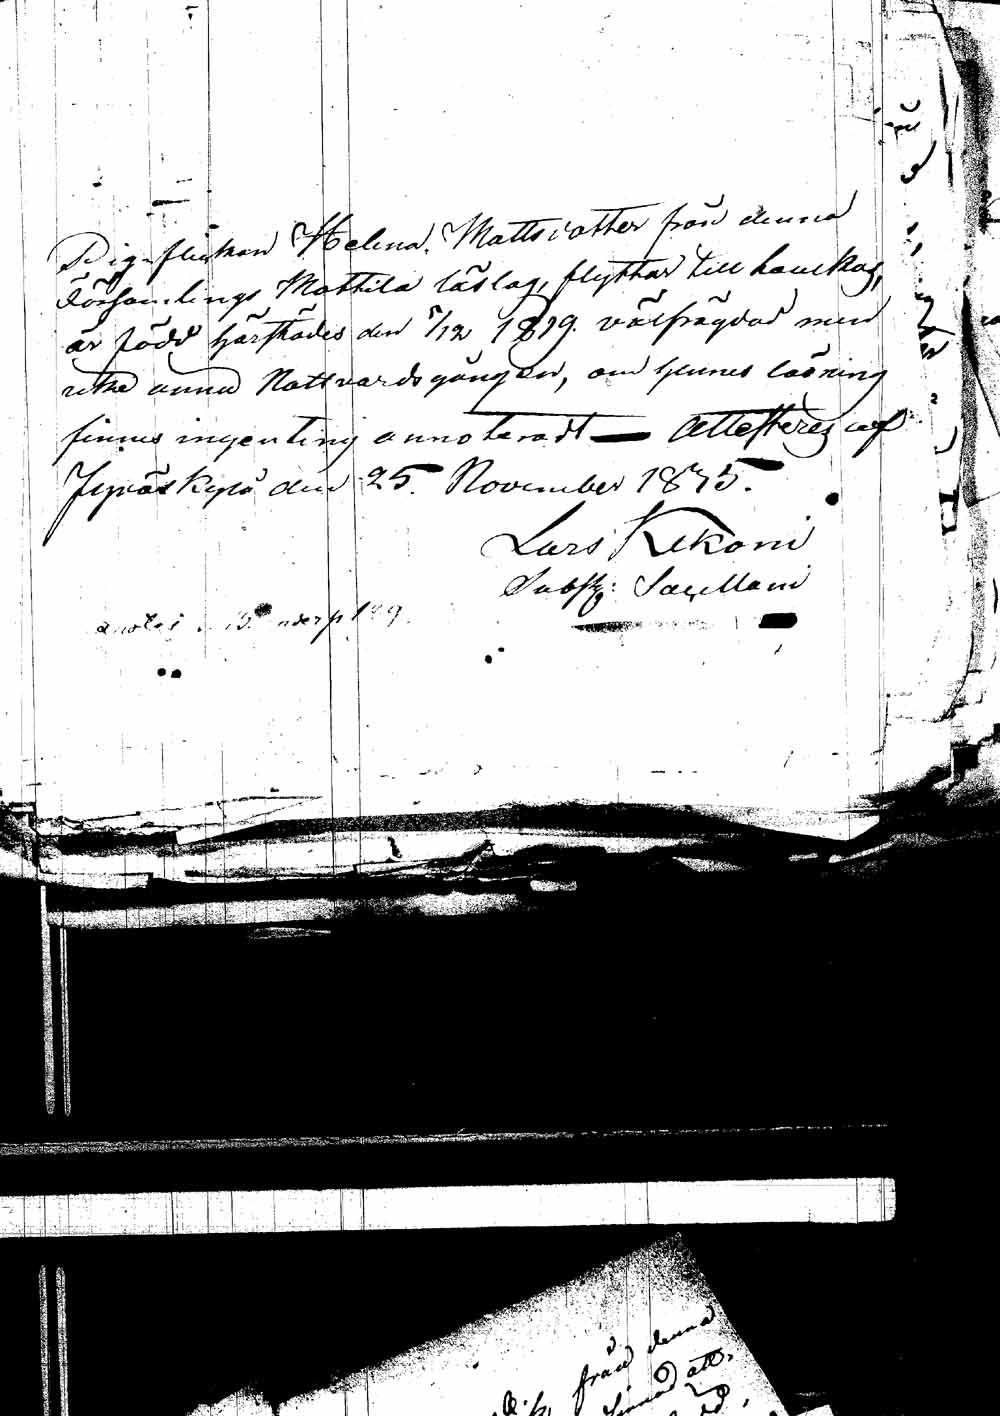 Pigflickan Helena Mattsdotter från denna
Församlings Mattila läslag, flyttar till Laukkas,
är född härstädes den 7/12 1819. välfrägdad men
icke ännu Nattvardsgången, om hennes läsning
finnes ingenting annoteradt — Attesteras af
Jyväskylä den 25. November 1875.
Lars Kekoni
Subst: Sacellani
från denna